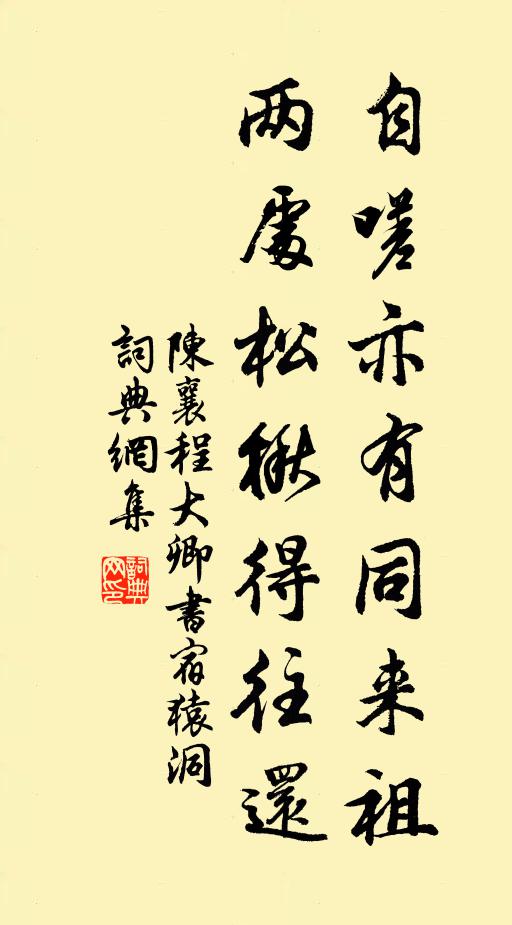 自嗟亦有同来祖
两處松楸得往還
陳襄程大卿書宿猿洞
詞典網集
詞典网印